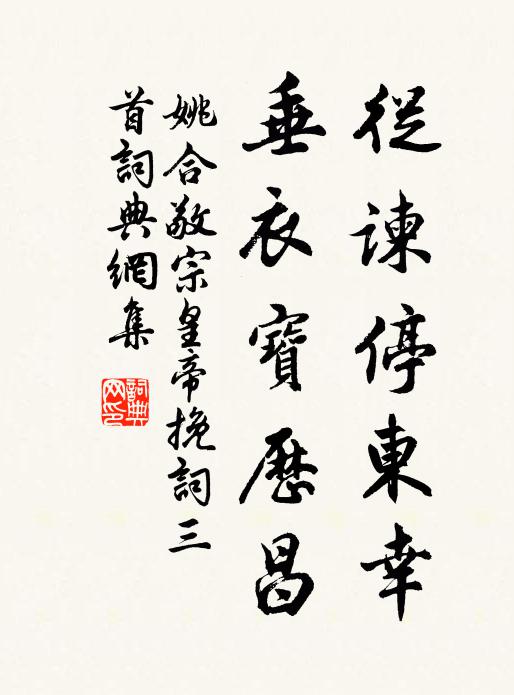 從諫停東幸
垂衣寶歷昌
姚合敬宗皇帝挽詞三
首詞典網集
詞典網印